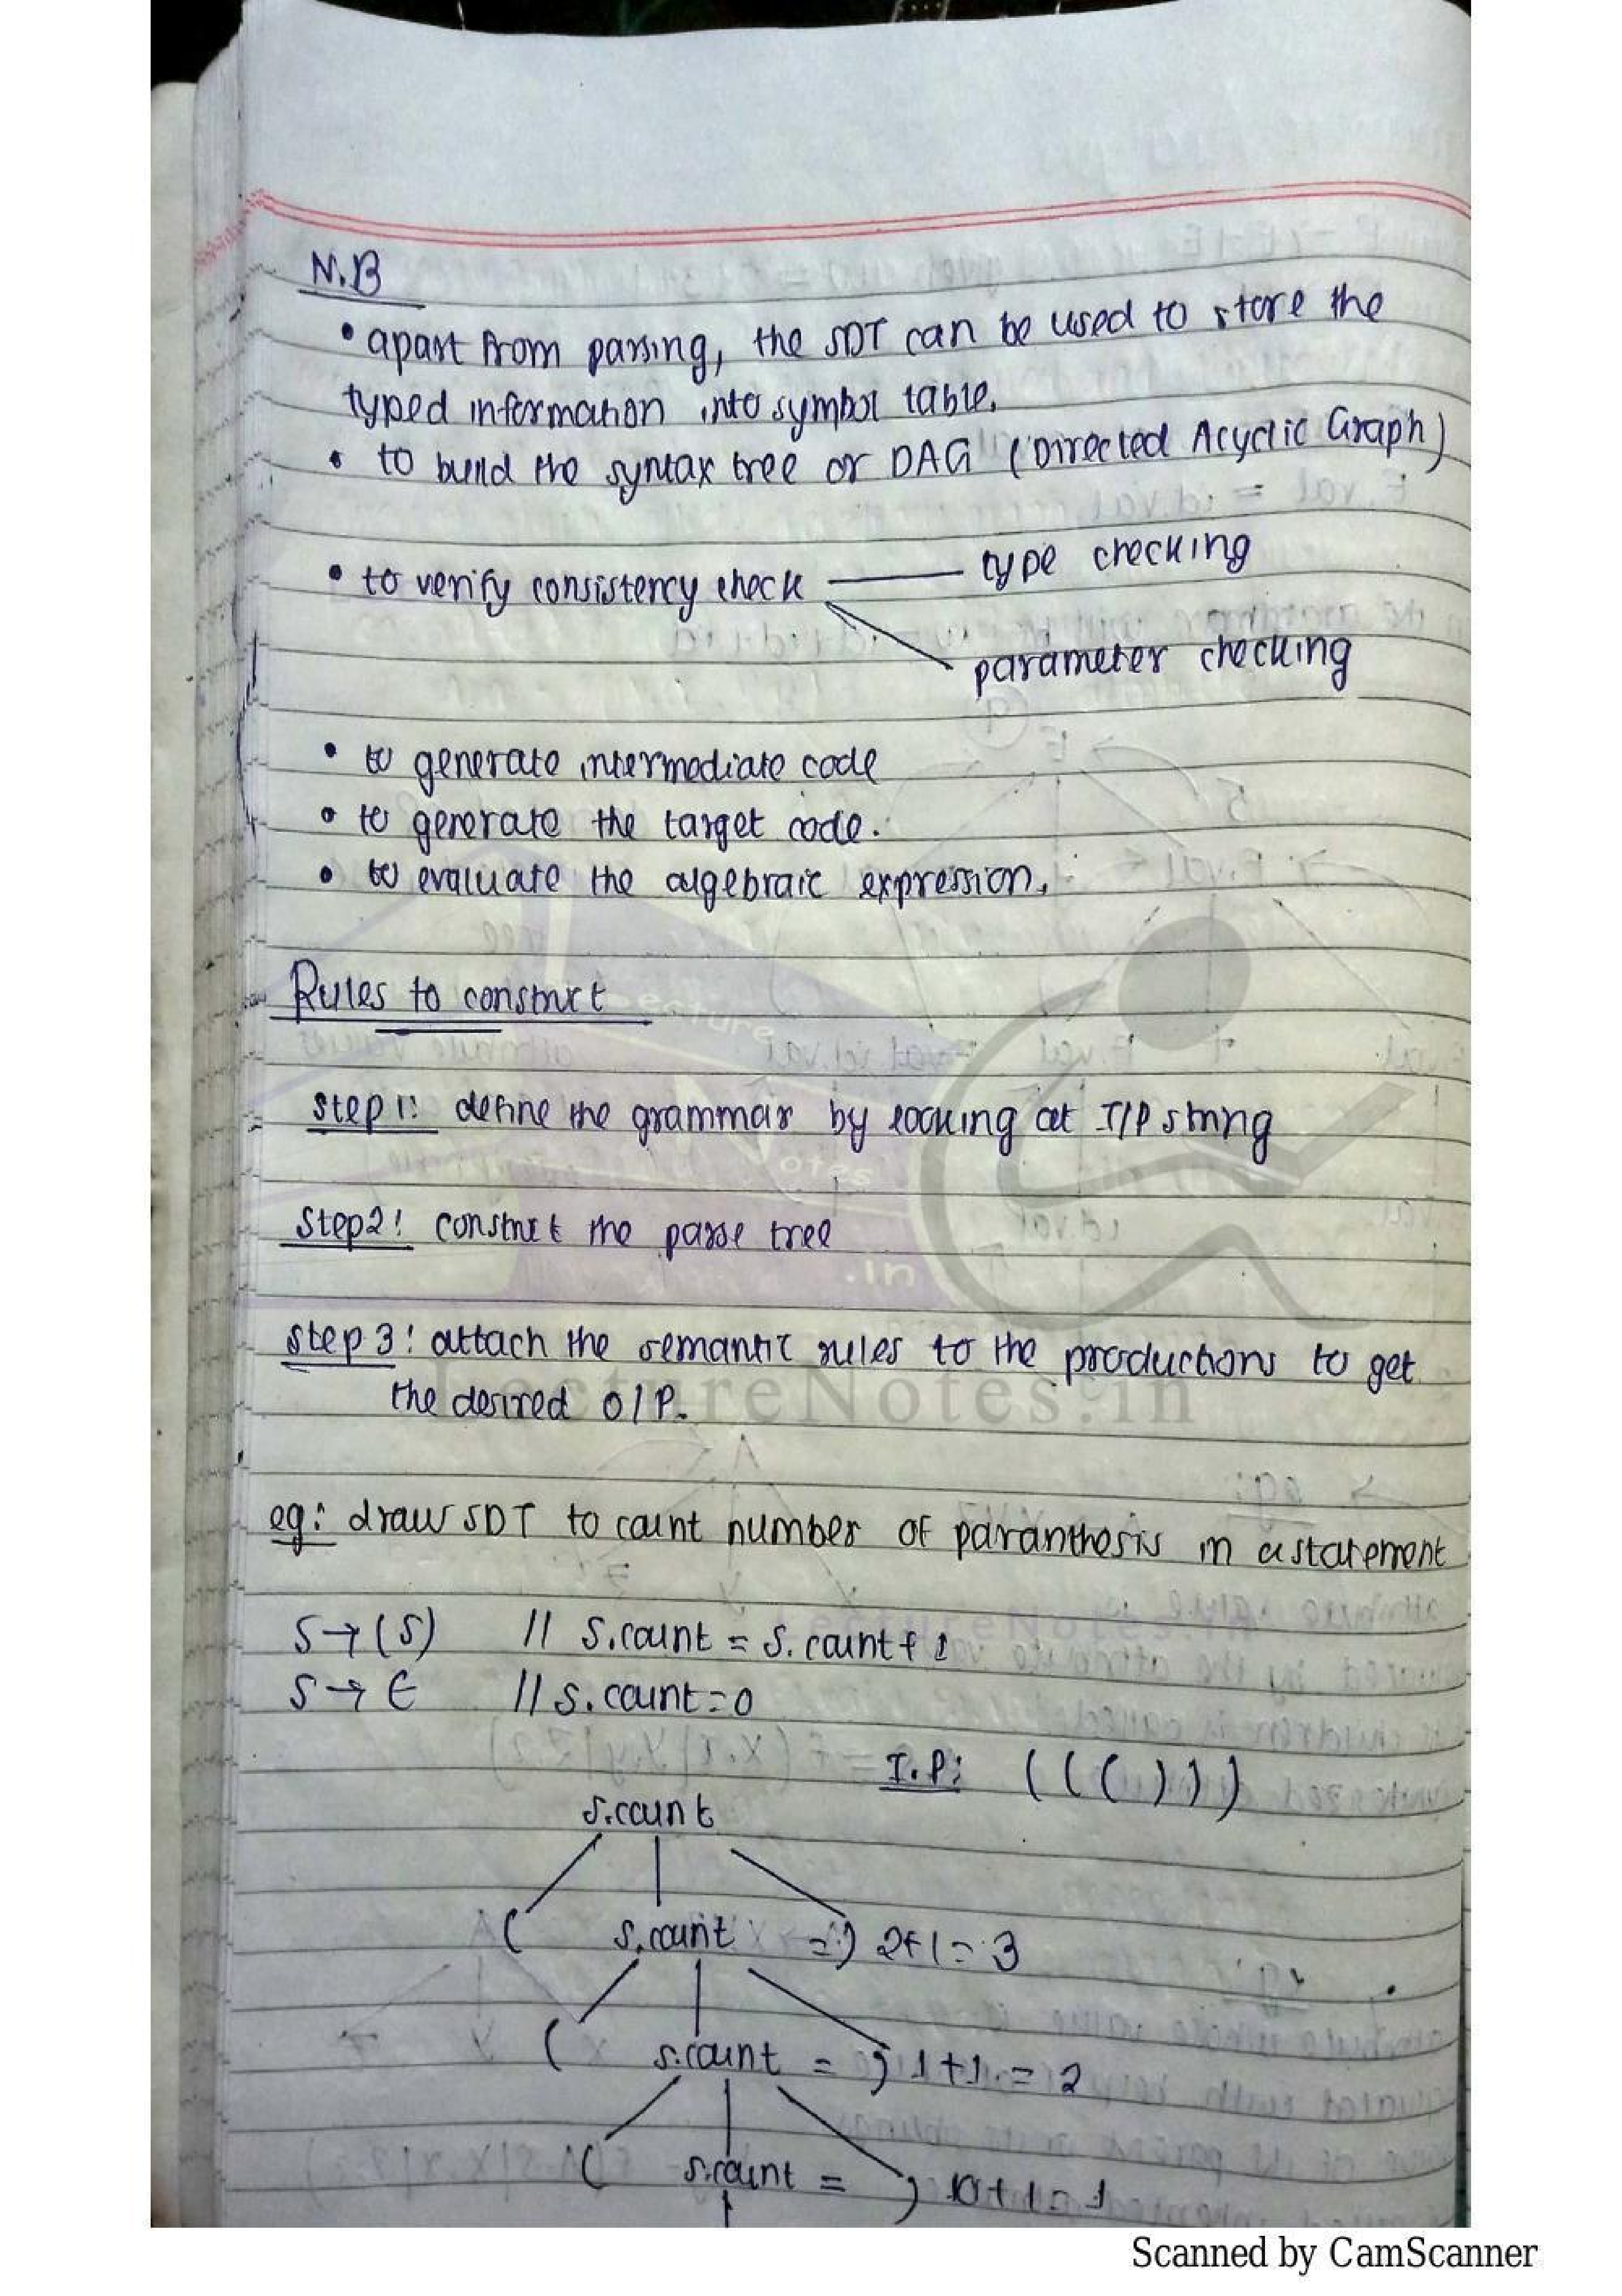 N.B
• apart from parsing, the SDT can be used to store the
typed information into symbol table.
• to build the syntax tree or DAG (Directed Acyclic Graph)
• to verify consistency check type checking
parameter checking
• to generate intermediate code
• to generate the target code.
• to evaluate the algebraic expression.
Rules to construct
Step 1: define the grammar by looking at I/P string
Step2: construct the parse tree
Step 3: attach the semantic rules to the productions to get
the desired O/P.
eg: draw SDT to count number of paranthesis in a statement
S→(S) // S.count = S.count+1
S→ε // S.count=0
I.P: ((()))
S.count
( S.count =) 2+1=3
( S.count = ) 1+1=2
( S.count = ) 0+1=1
Lecture
Notes
.in
LectureNotes.in
LectureNotes.in
Scanned by CamScanner